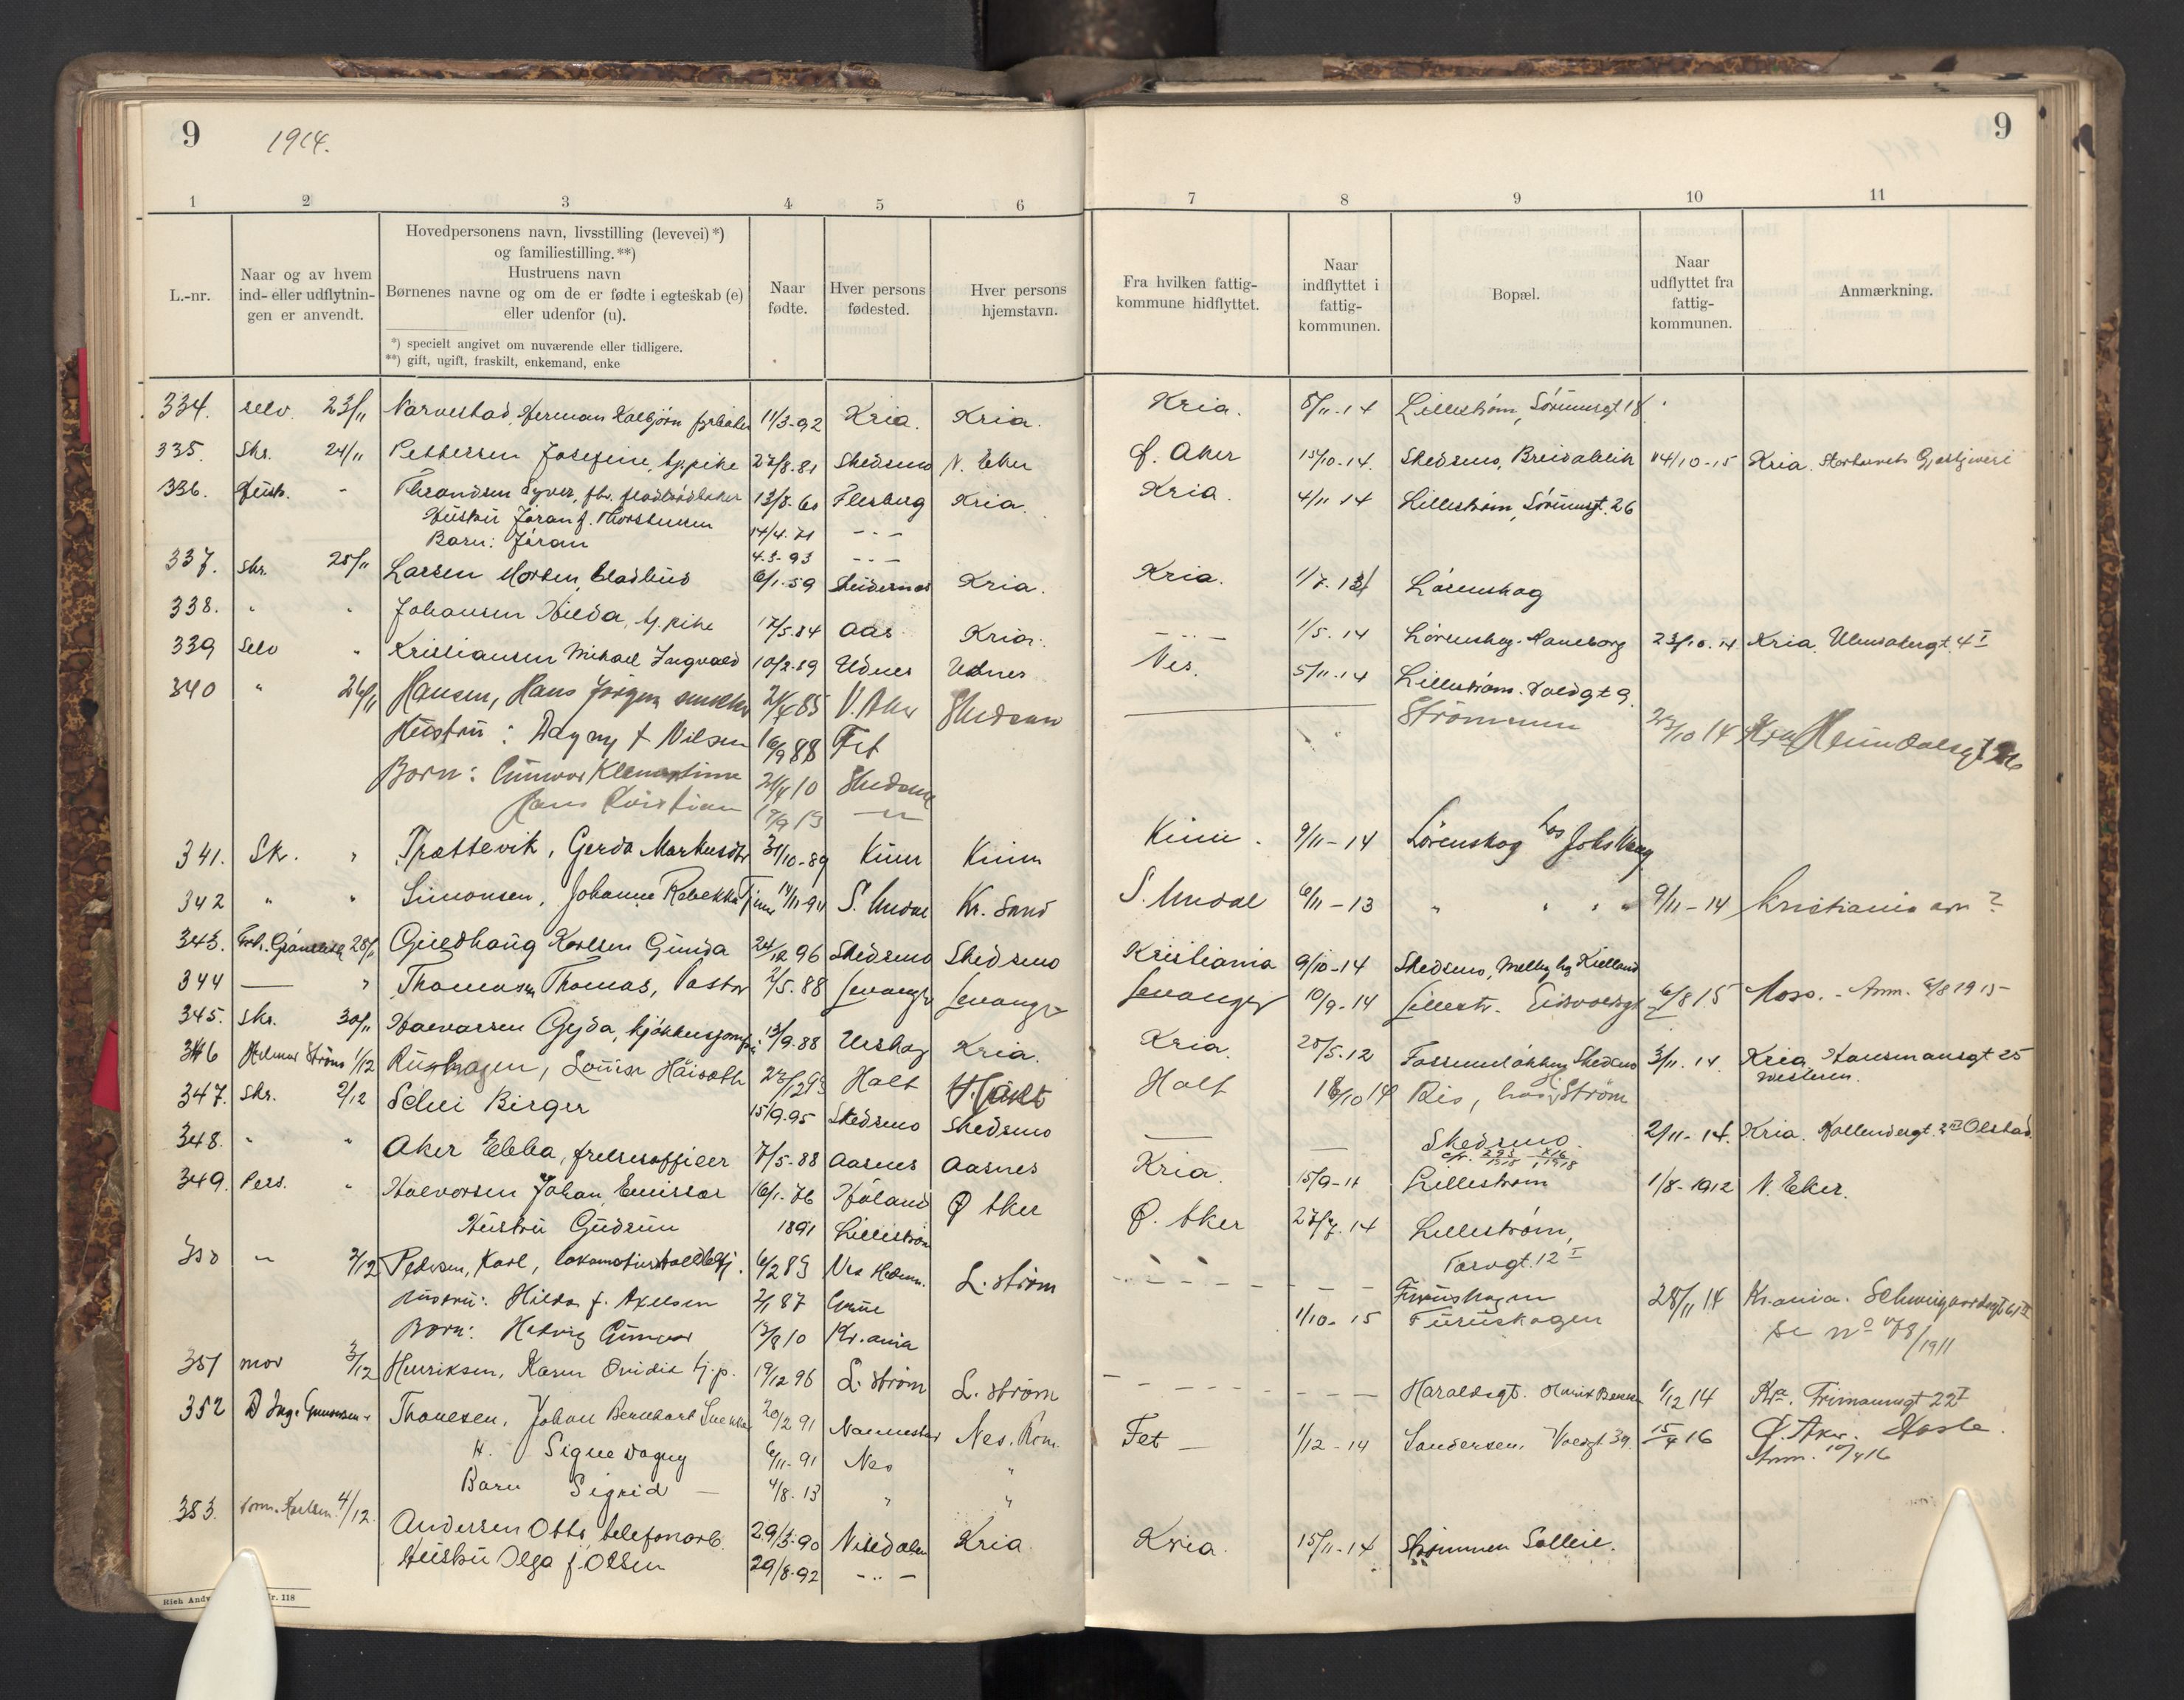 9 1914. 9
1 2 3 4 5 6 7 8 9 10 11
L.-nr.
Naar og av hvem
ind- eller udflytnin-
gen er anvendt.
Hovedpersonens navn, livsstilling (levevei)*)
og familiestilling.**)
Hustruens navn
Børnenes navne og om de er fødte i egteskab (e)
eller udenfor (u).
*) specielt angivet om nuværende eller tidligere.
**) gift, ugift, fraskilt, enkemand, enke
Naar
fødte.
Hver persons
fødested.
Hver persons
hjemstavn.
Fra hvilken fattig-
kommune hidflyttet.
Naar
indflyttet i
fattig-
kommunen.
Bopæl.
Naar
udflyttet fra
fattig-
kommunen.
Anmærkning.
334. selv. 23/11 Narvestad, Herman Kolbjørn 11/3-92 Kria. Kria. Kria. 5/11-14 Lillestrøm, Sørumsgt 18
335. Skr. 24/11 Pettersen Josefine, tj.pike 27/8.81 Skedsmo N. Eker Ø. Aker 15/10-14. Skedsmo, Breidablik 14/10-15 Kria.
336. - Throndsen Syver, 13/8.60 Flesberg Kria. Kria. 4/11 14 Lillestrøm, Sørumsgt. 26
Hustru Jøran f. Thorstensen 14/4.71 - - -
Barn: Jøran 4.3-93 - - -
337. Skr. 25/11 Larsen Morten, 6/1.59 Kria. Kria. 1/7.13 Lørenskog
338. " " Johansen Hilda, tj. pike 17/5.84 Aas Kria. - " - 1/5.14 Lørenskog. Haneborg 23/10.14. Kria. 4 I
339 Selv " Kristiansen Mikael Ingvald 10/2.89 Udnes Udnes Nes. 5/11-14 Lillestrøm. Voldgt 9.
340 " 26/11 Hansen, Hans Jørgen 2/4 85 V. Aker Skedsmo Strømmen 27/10 14
Hustru: Dagny f Nilsen 16/9 88 Fet
Born: Gunvor Klementine 21/4 10 Skedsmo
Hans Kristian 17/9 13 — " —
341. Sk. " Trættevik, Gerda Markusdtr 31/10-89 Kinn Kinn Kinn. 9/11-14 Lørenskog hos Johs Vaag
342 " " Simonsen, Johanne Rebekka 14/11-94 S. Undal Kr. Sand S. Undal 6/11-13 " " " " 9/11-14 Kristiania ?
343. 28/11 Guldhaug Karlsen Gunda 24/12 96 Skedsmo Skedsmo Kristiania 9/10-14 Skedsmo, Kielland
344 — " Thomasen Thomas, Pastor 2/5.88 Levanger Levanger Levanger 10/9-14 Lillestr. Eidsvoldsgt 6/8 15 Moss. - Anm. 6/8 1915
345. Skr. 30/11 Halvorsen Gyda, 13/9.88 Urskog Kria. Kria. 25/5.12 Skedsmo 3/11.14. Kria. Hausmansgt 25
346 Hilmar Strøm 1/12 Rughagen, Louise 27/12 93 Holt Holt Holt 18/10 14 Ris, hos Strøm
347. Skr. 2/12 Schei Birger 15/9.95 Skedsmo Skedsmo — — Skedsmo. 2/11-14. Kria. Olstad
348. " " Aker Ebba, frelsesofficer 7/5-88 Aasnes Aasnes Kria. 15/9-14 Lillestrøm 1/8-1912 N. Eker.
349. Pers. " Halvorsen Johan Emissær 16/1-76 Høland Ø Aker Ø. Aker 27/7.14 Lillestrøm,
Hustru Gudrun 1891 Lillestrøm Torvgt. 12 I
350 " 2/12 Pedersen, Karl, 6/2 89 Nes Hedem. L. strøm Furuskogen 28/11 14 Kr.ania. Schweigaardsgt 61 III
Hustru: Hilda f. Axelsen 2/1 87 Grue 1/10-15 Furuskogen Se No 178/1911
Born: Hedvig Gunvor 13/8 10 Kr.ania
351 mor 3/12 Henriksen, Karen Ovidia tj.p. 19/12 96 L. strøm L. strøm Haraldsgt. 1/12 14 Kra. Frimannsgt 22 I
352 Thonesen, Johan Bernhard Snekker 20/2 91 Nannestad Nes. Rom. Fet — 1/12-14 Sandersen. Voldgt 39. 15/4 16 Ø. Aker. Hasle.
H. Signe Dagny 6/11-91 Nes " Anm. 10/4 16
Barn Sigrid — 4/8-13 " "
353. Karlsen 4/12. Andersen Otto, telefonarb. 29/3-90 Nitedalen Kria Kria. 15/11-14 Strømmen Sollie.
Hustru Olga f. Olsen 29/8-92 - " -
Nr. 118